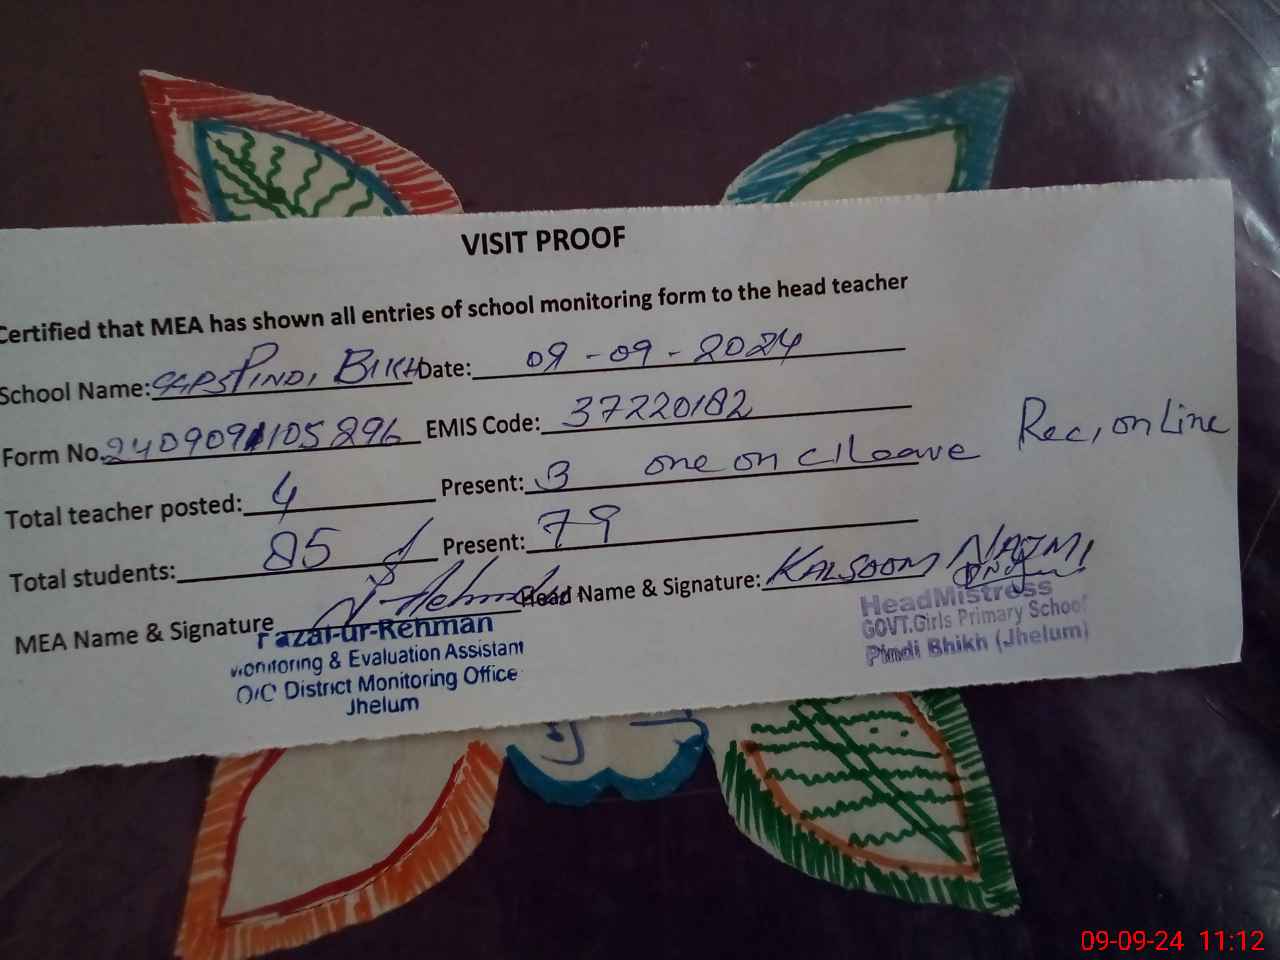 VISIT PROOF
Certified that MEA has shown all entries of school monitoring form to the head teacher
School Name: GGPS PINDI BIKH Date: 09-09-2024
Form No. 240909105896 EMIS Code: 37220182
Total teacher posted: 4 Present: 3 one on c/leave Rec, on Line
Total students: 85 Present: 79
MEA Name & Signature Head Name & Signature: KALSOOM NAZMI
Fazal-ur-Rehman
Monitoring & Evaluation Assistant
O/C District Monitoring Office
Jhelum
HeadMistress
GOVT.Girls Primary School
Pindi Bhikh (Jhelum)
09-09-24 11:12